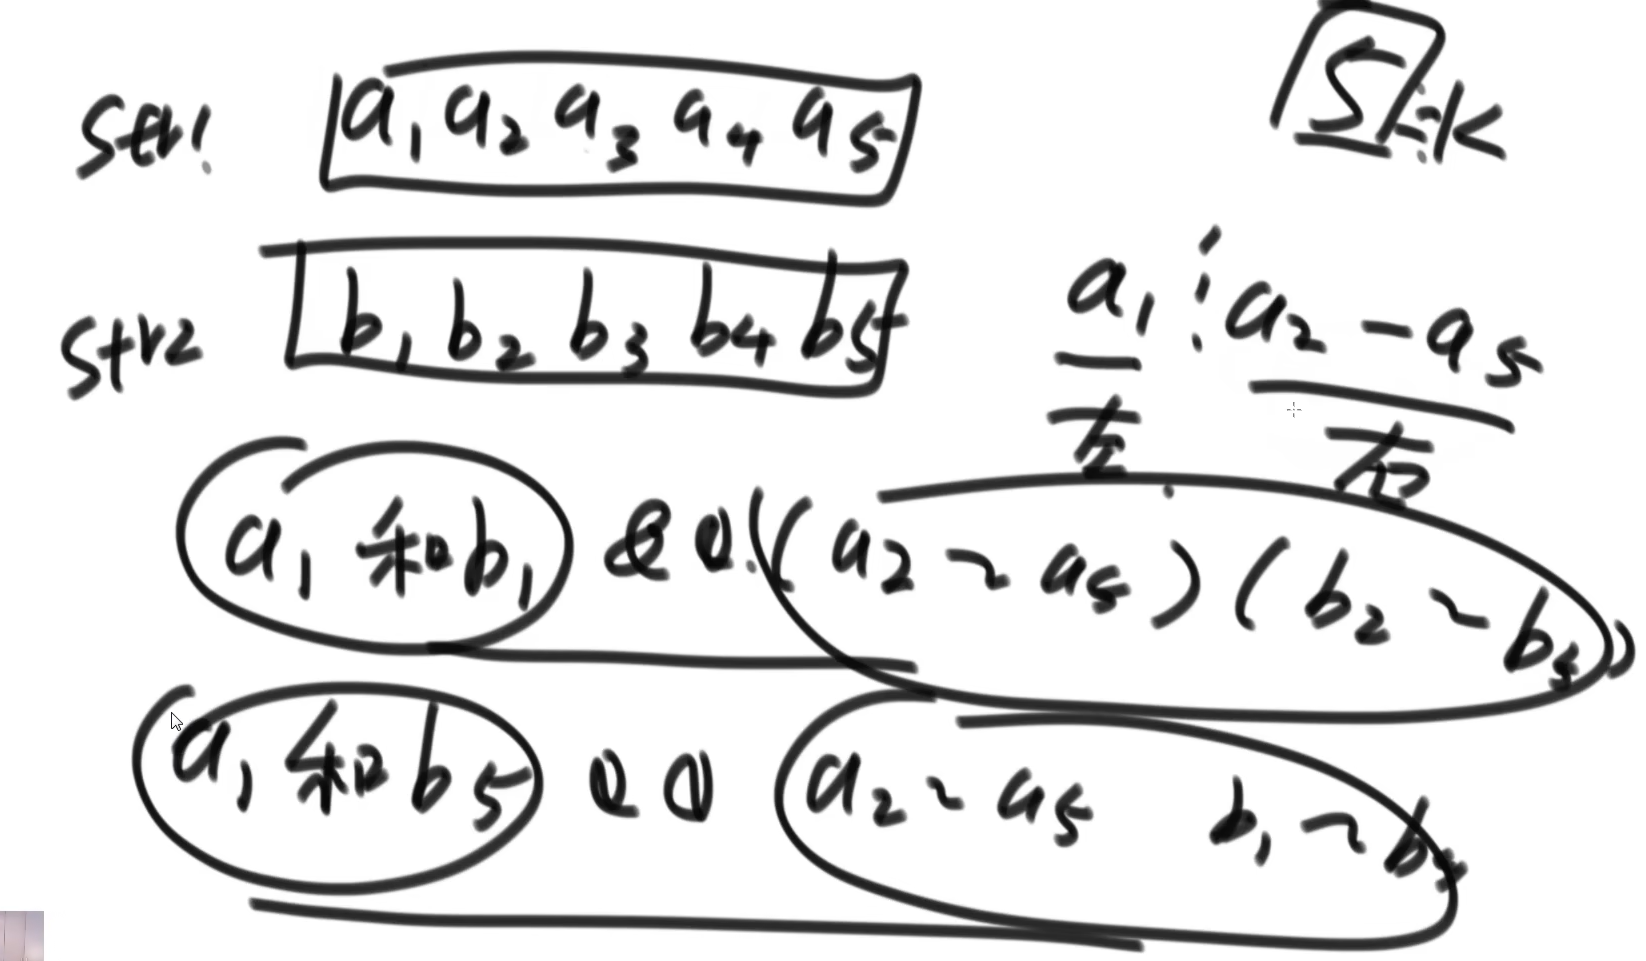 str1 a1 a2 a3 a4 a5
S:=K
str2 b1 b2 b3 b4 b5
a1 ¦ a2 - a5
左 右
a1 和 b1 && ((a2 ~ a5) (b2 ~ b5))
a1 和 b5 && a2 ~ a5 b1 ~ b4